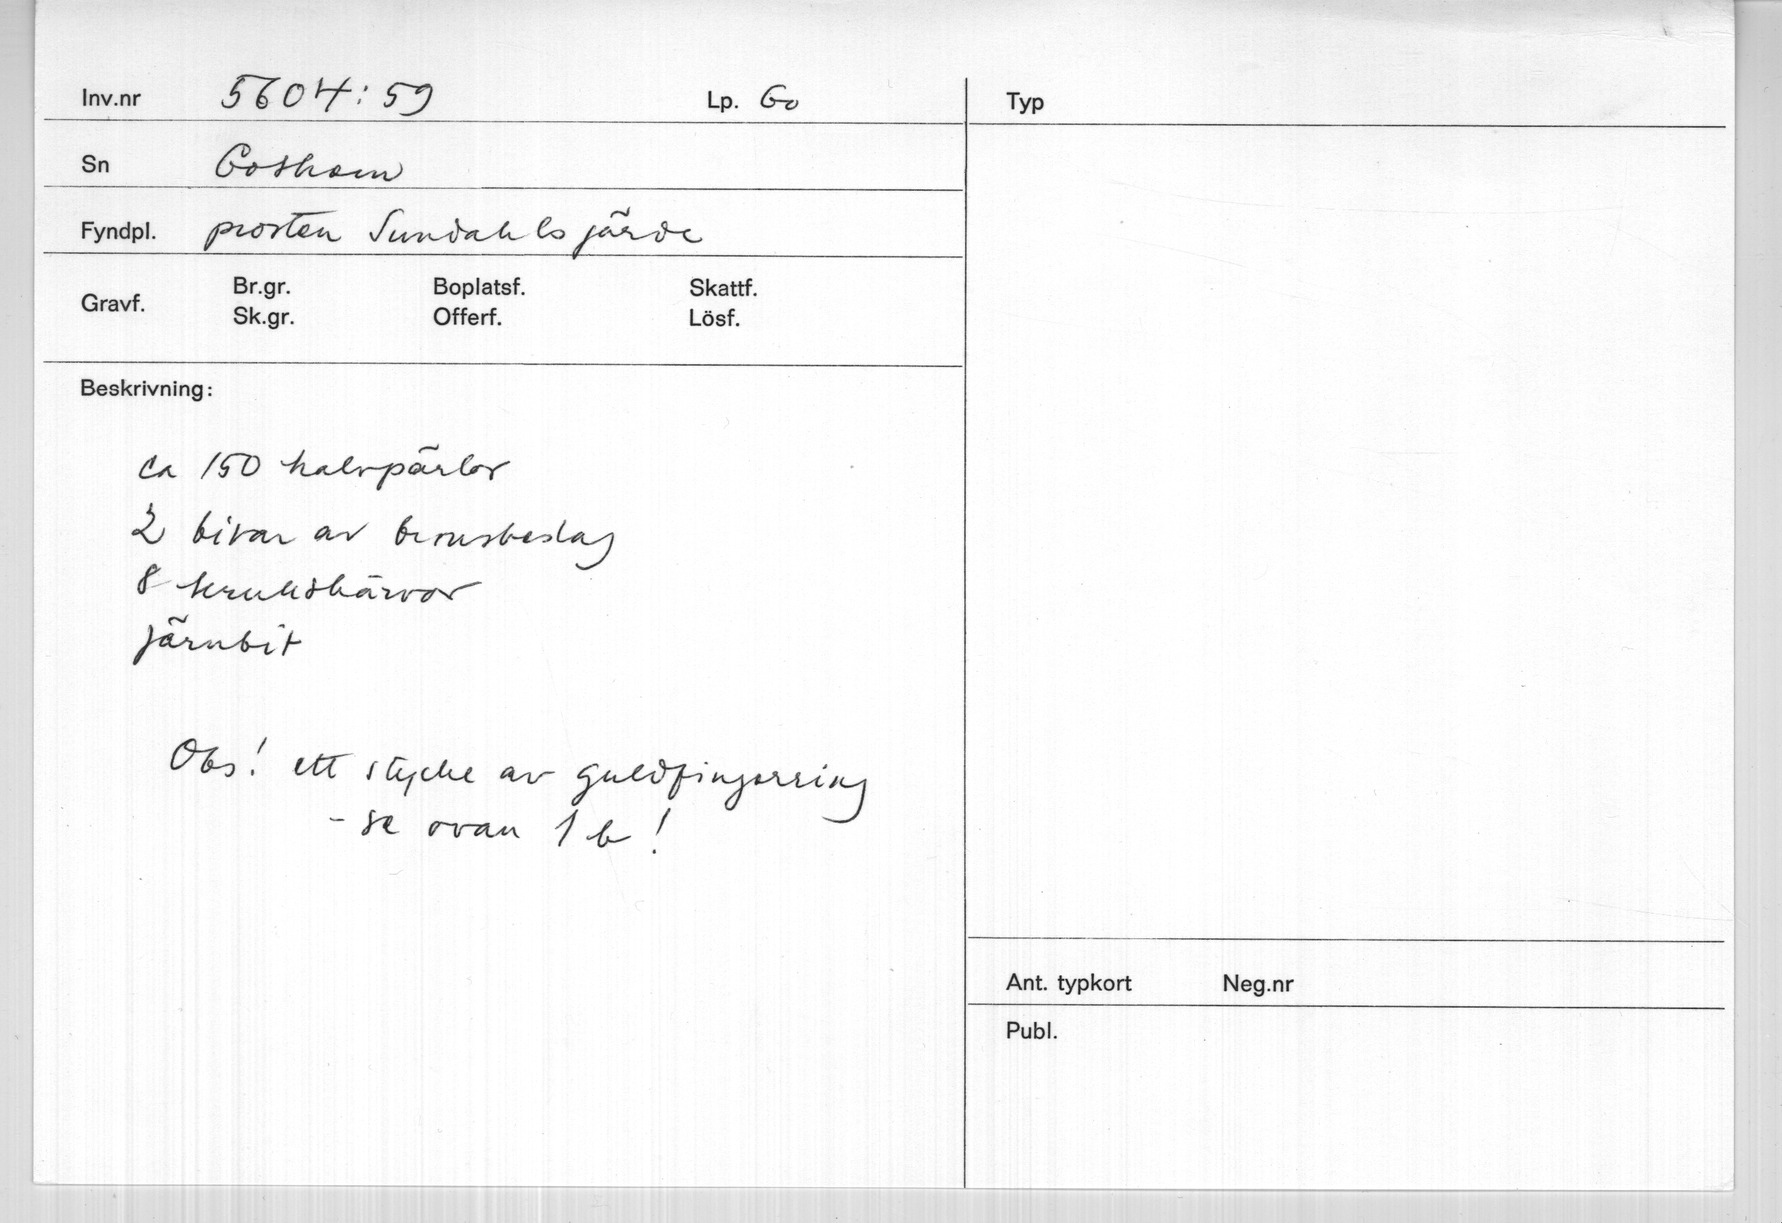 Inv.nr 5604:59 Lp. Go
Sn Gothem
Fyndpl. prosten Sundahls järde
Gravf. Br.gr. Boplatsf. Skattf.
Sk.gr. Offerf. Lösf.
Beskrivning:
ca 150 halvpärlor
2 bitar av bronsbeslag
8 krukskärvor
järnbit
Obs! ett stycke av guldfingerring
- se ovan 1 b!
Typ
Ant. typkort Neg.nr
Publ.